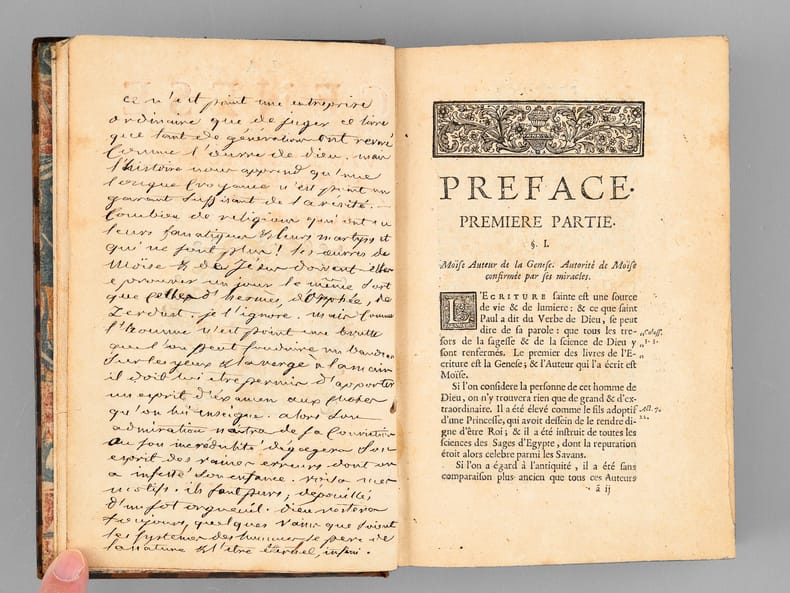 ce n'est point une entreprise
ordinaire que de juger ce livre
que tant de générations ont reveré
comme l'œuvre de dieu. mais
l'histoire nous apprend qu'une
longue croyance n'est point un
garant suffisant de la verité.
Combien de religions qui ont eu
leurs fanatiques & leurs martyrs et
qui ne sont plus! les œuvres de
Moïse & de Jésus doivent-elles
eprouver un jour le même sort
que celles d'hermes, d'Orphée, de
Zerdust. je l'ignore. mais comme
l'homme n'est point une brutte
que l'on peut conduire un bandeau
sur les yeux & la verge à la main
il doit lui être permis d'apporter
un esprit d'examen aux choses
qu'on lui enseigne. alors son
admiration naitra de sa conviction
ou son incrédulité dégagera son
esprit des vaines erreurs dont on
a infesté son enfance. voila mes
motifs. ils sont purs; depouillés
d'un sot orgueil. dieu restera
toujours, quelques vains que soient
les systemes des hommes, le pere de
la nature & l'être éternel, infini.
PREFACE.
PREMIERE PARTIE.
§. I.
Moïse Auteur de la Genese. Autorité de Moïse
confirmée par ses miracles.
L'ECRITURE sainte est une source
de vie & de lumiere: & ce que saint
Paul a dit du Verbe de Dieu, se peut
dire de sa parole: que tous les tre-
sors de la sagesse & de la science de Dieu y
sont renfermés. Le premier des livres de l'E-
criture est la Genese; & l'Auteur qui l'a écrit est
Moïse.
„Coloss.
„
Si l'on considere la personne de cet homme de
Dieu, on n'y trouvera rien que de grand & d'ex-
traordinaire. Il a été élevé comme le fils adoptif
d'une Princesse, qui avoit dessein de le rendre di-
gne d'être Roi; & il a été instruit de toutes les
sciences des Sages d'Egypte, dont la reputation
étoit alors celebre parmi les Savans.
Act. 7.
22.
Si l'on a égard à l'antiquité, il a été sans
comparaison plus ancien que tous ces Auteurs
â ij